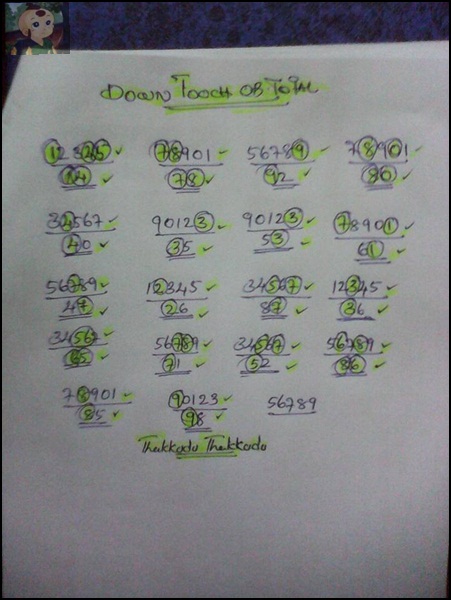 DOWN TOOCH OB TOTAL
12345 78901 56789 78901
14 78 92 80
34567 90123 90123 78901
40 35 53 61
56789 12345 34567 12345
47 26 87 36
34567 56789 34567 56789
65 71 52 86
78901 90123 56789
85 98
Thakkadu Thakkadu